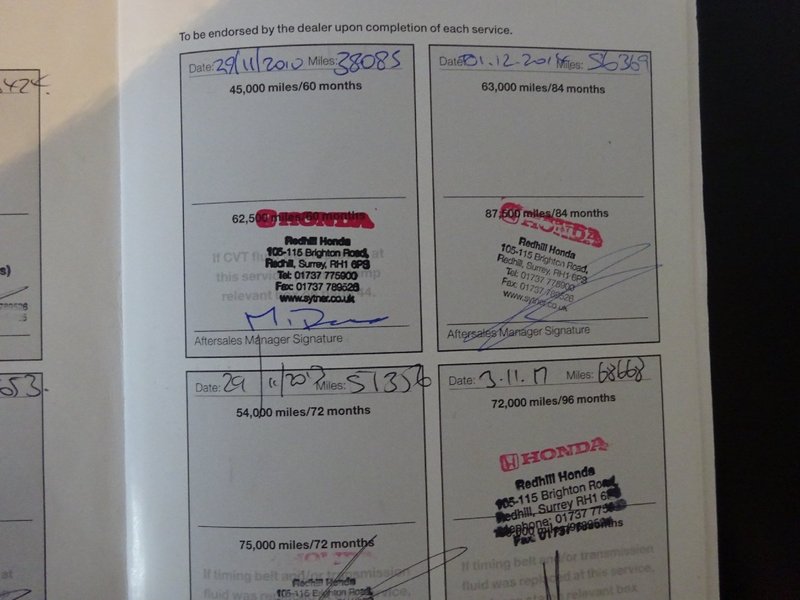 To be endorsed by the dealer upon completion of each service.
Date: 29/11/2010 Miles: 38085
45,000 miles/60 months
62,500 miles/60 months
HONDA
Redhill Honda
105-115 Brighton Road,
Redhill, Surrey, RH1 6PS
Tel: 01737 775900
Fax: 01737 789526
www.sytner.co.uk
If CVT
at
this
relevant
Aftersales Manager Signature
Date: 01.12.2014 Miles: 56369
63,000 miles/84 months
87,500 miles/84 months
HONDA
Redhill Honda
105-115 Brighton Road,
Redhill, Surrey, RH1 6PS
Fax: 01737 789526
www.sytner.co.uk
Aftersales Manager Signature
Date: 29 Miles: 51356
54,000 miles/72 months
75,000 miles/72 months
If timing belt and/or transmission
Redhill Honda
fluid was replaced at this service,
105-115 Brighton Road,
Date: 3.11.17 Miles: 68668
72,000 miles/96 months
HONDA
Redhill Honda
105-115 Brighton Road,
Redhill, Surrey RH1
If timing belt and/or transmission
fluid was replaced at this service,
relevant box
653.
s)
at